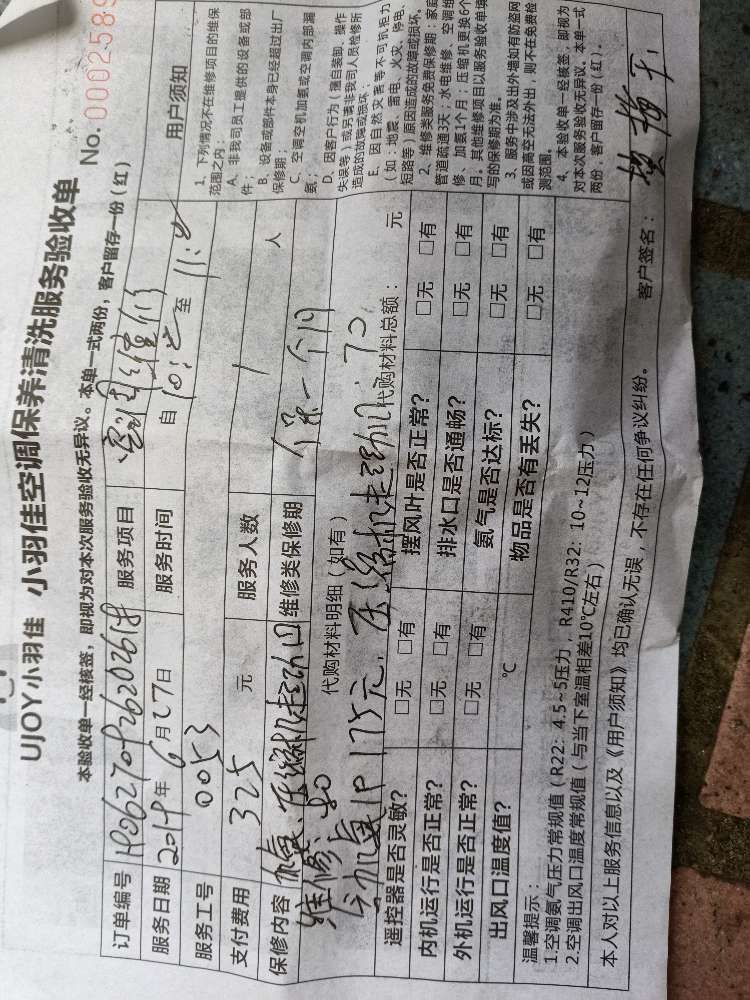 No. 0002589
UJOY小羽佳 小羽佳空调保养清洗服务验收单
本验收单一经核签，即视为对本次服务验收无异议。本单一式两份，客户留存一份（红）
订单编号
服务项目
服务日期 2019年6月27日
服务时间 自 至
服务工号 0053
支付费用 325 元
服务人数 1 人
保修内容
维修类保修期 保一个月
代购材料明细（如有）
维修 80
175元，压缩机 70
代购材料总额： 元
遥控器是否灵敏? □无 □有
摆风叶是否正常? □无 □有
内机运行是否正常? □无 □有
排水口是否通畅? □无 □有
外机运行是否正常? □无 □有
氨气是否达标? □无 □有
出风口温度值? ℃
物品是否有丢失? □无 □有
温馨提示：
1.空调氨气压力常规值（R22：4.5~5压力，R410/R32：10~12压力）
2.空调出风口温度常规值（与当下室温相差10℃左右）
本人对以上服务信息以及《用户须知》均已确认无误，不存在任何争议纠纷。
客户签名：
用户须知
1、下列情况不在维修项目的维保
范围之内：
A、非我司员工提供的设备或部
件；
B、设备或部件本身已经超过出厂
保修期；
C、空调空机加氨或空调内部漏
氨；
D、因客户行为（擅自装卸、操作
失误等）或另请非我司人员检修所
造成的故障或损坏；
E、因自然灾害等不可抗拒力
（如：地震、雷电、火灾、停电、
短路等）原因造成的故障或损坏。
2、维修类服务免费保修期：家庭
管道疏通3天；水电维修、空调维
修、加氨1个月；压缩机更换6个
月。其他维修项目以服务验收单填
写的保修期为准。
3、服务中涉及出外墙如有防盗网
或因高空无法外出，则不在免费检
测范围。
4、本验收单一经核签，即视为
对本次服务验收无异议。本单一式
两份，客户留存一份（红）。